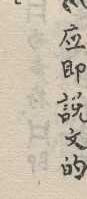 应即說文的